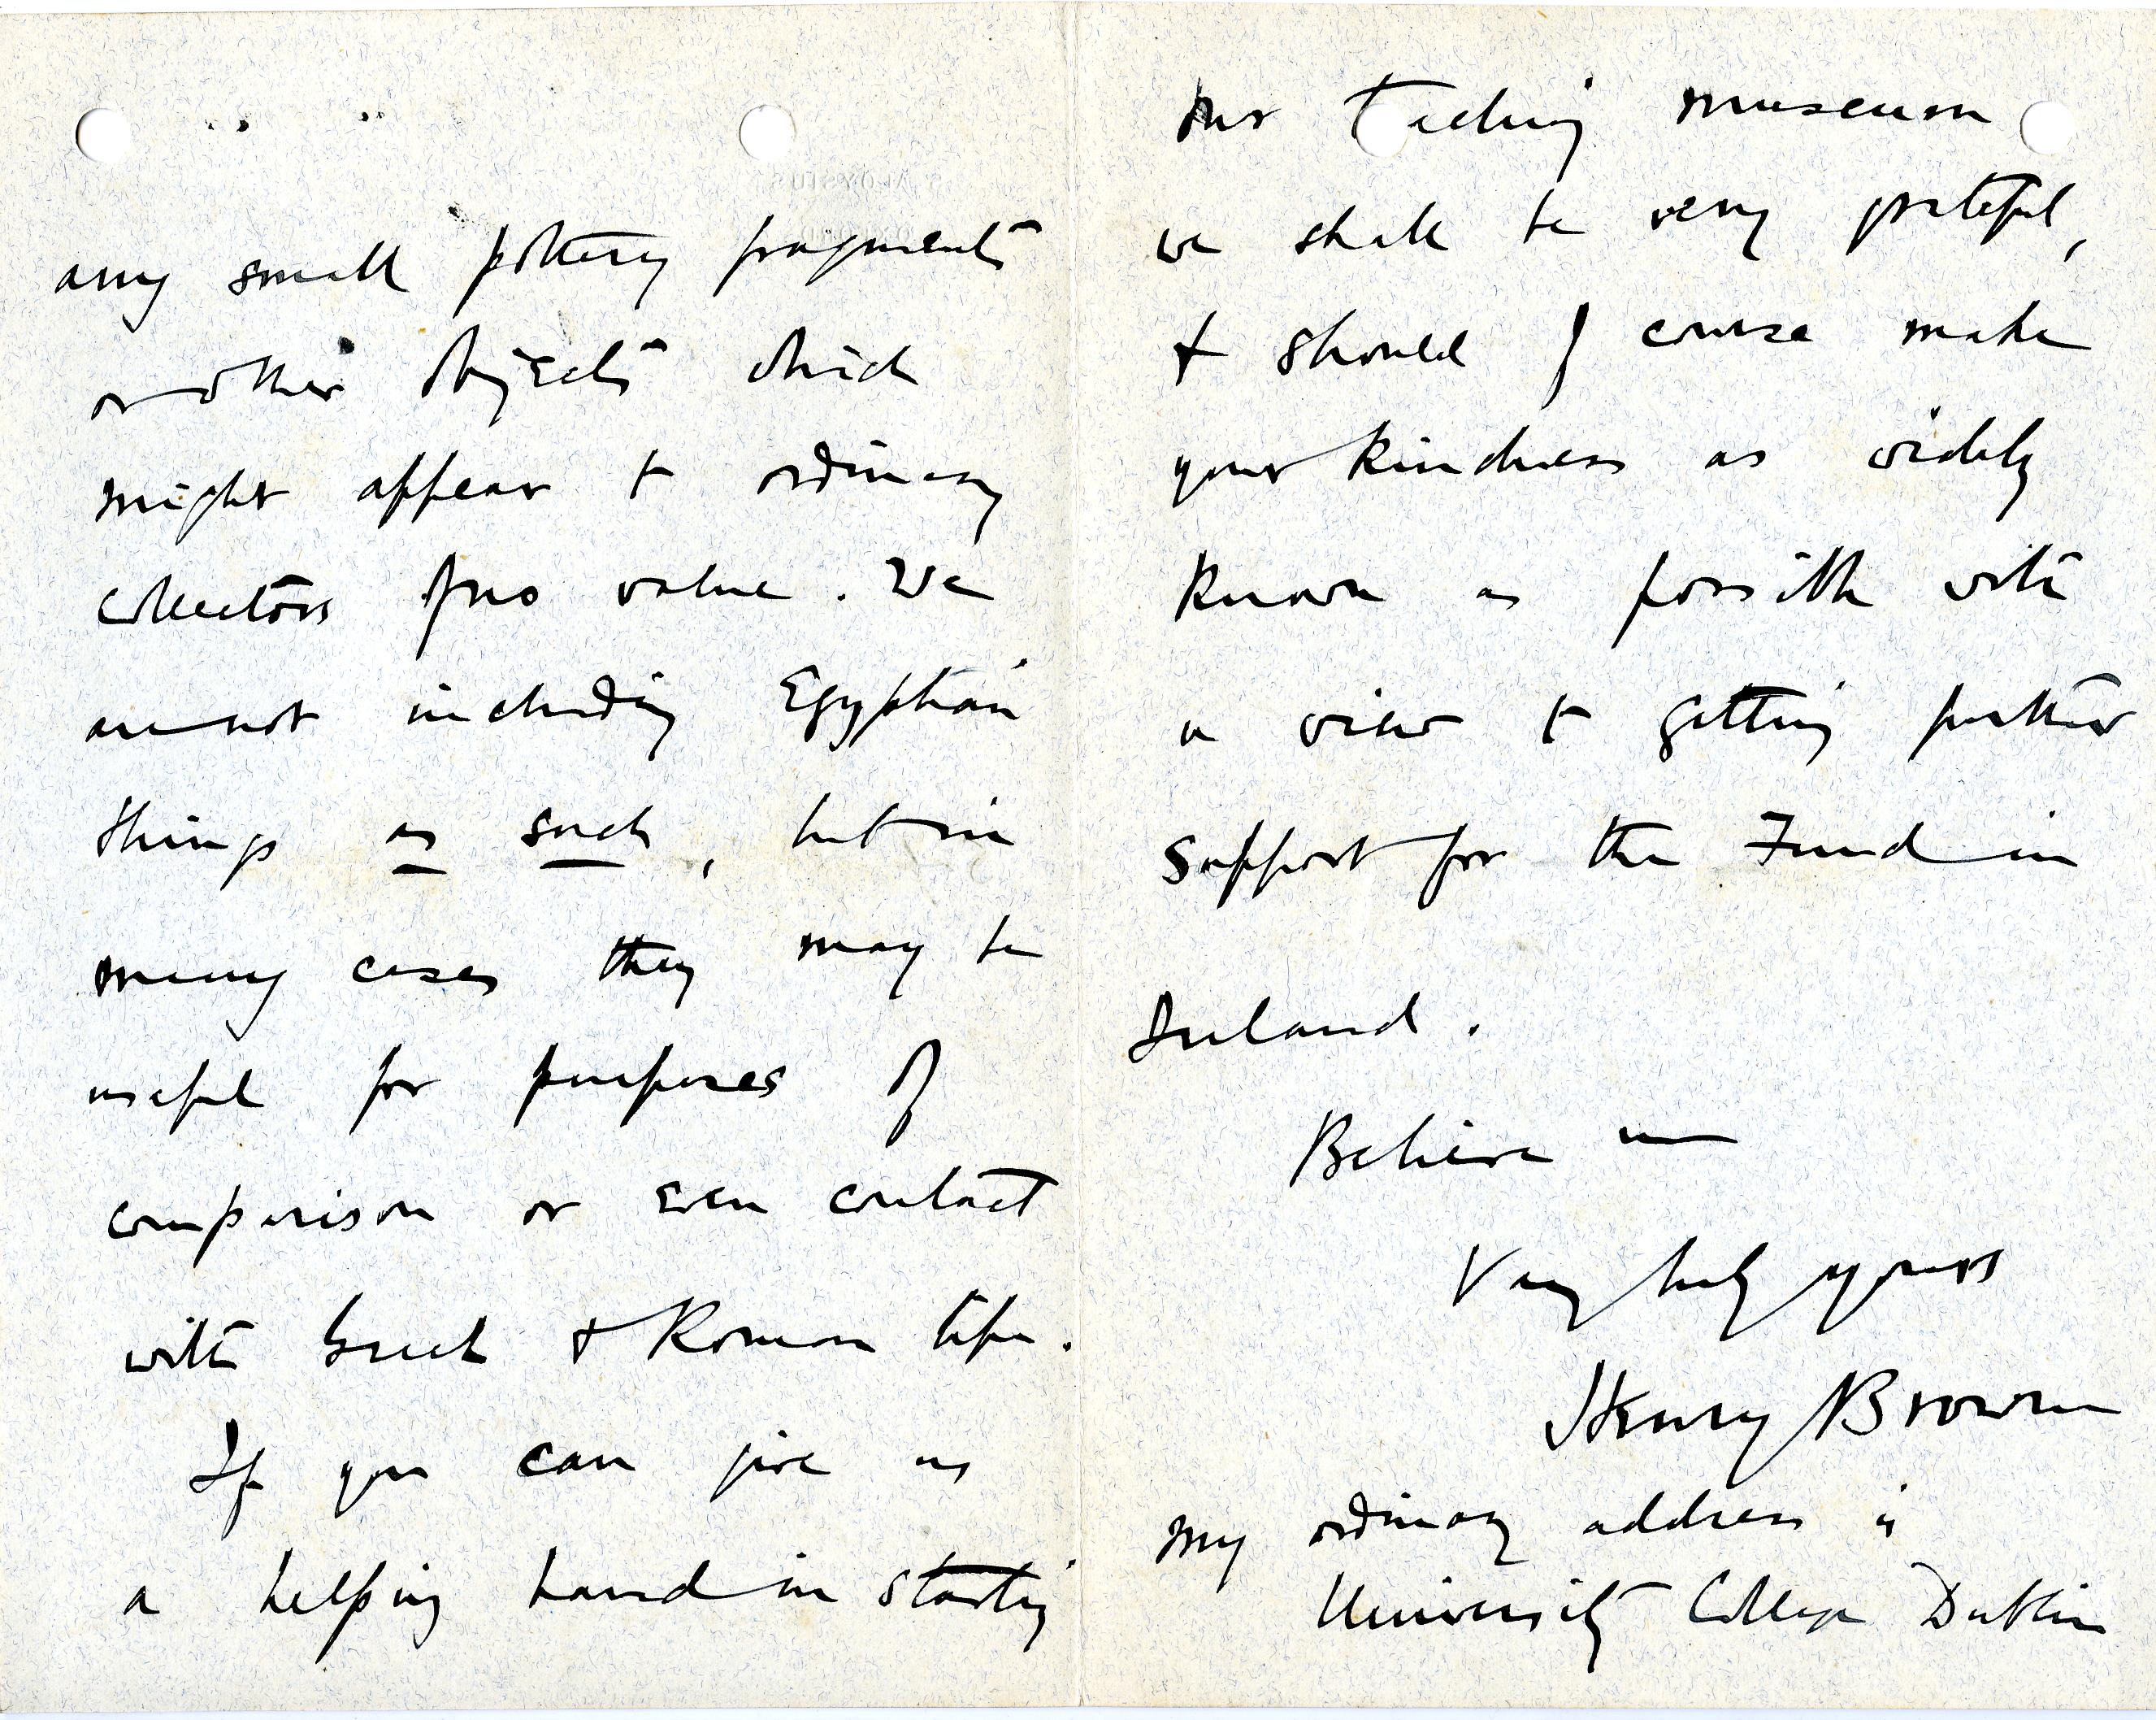 any small pottery fragments
or other objects which
might appear to ordinary
collectors of no value. We
are not including Egyptian
things as such, but in
many cases they may be
useful for purposes of
comparison or even contact
with Greek & Roman life.
If you can give us
a helping hand in starting
our teaching museum
we shall be very grateful,
& should of course make
your kindness as widely
known as possible with
a view to getting further
support for the Fund in
Ireland.
Believe me
Very truly yours
Henry Browne
My ordinary address is
University College Dublin